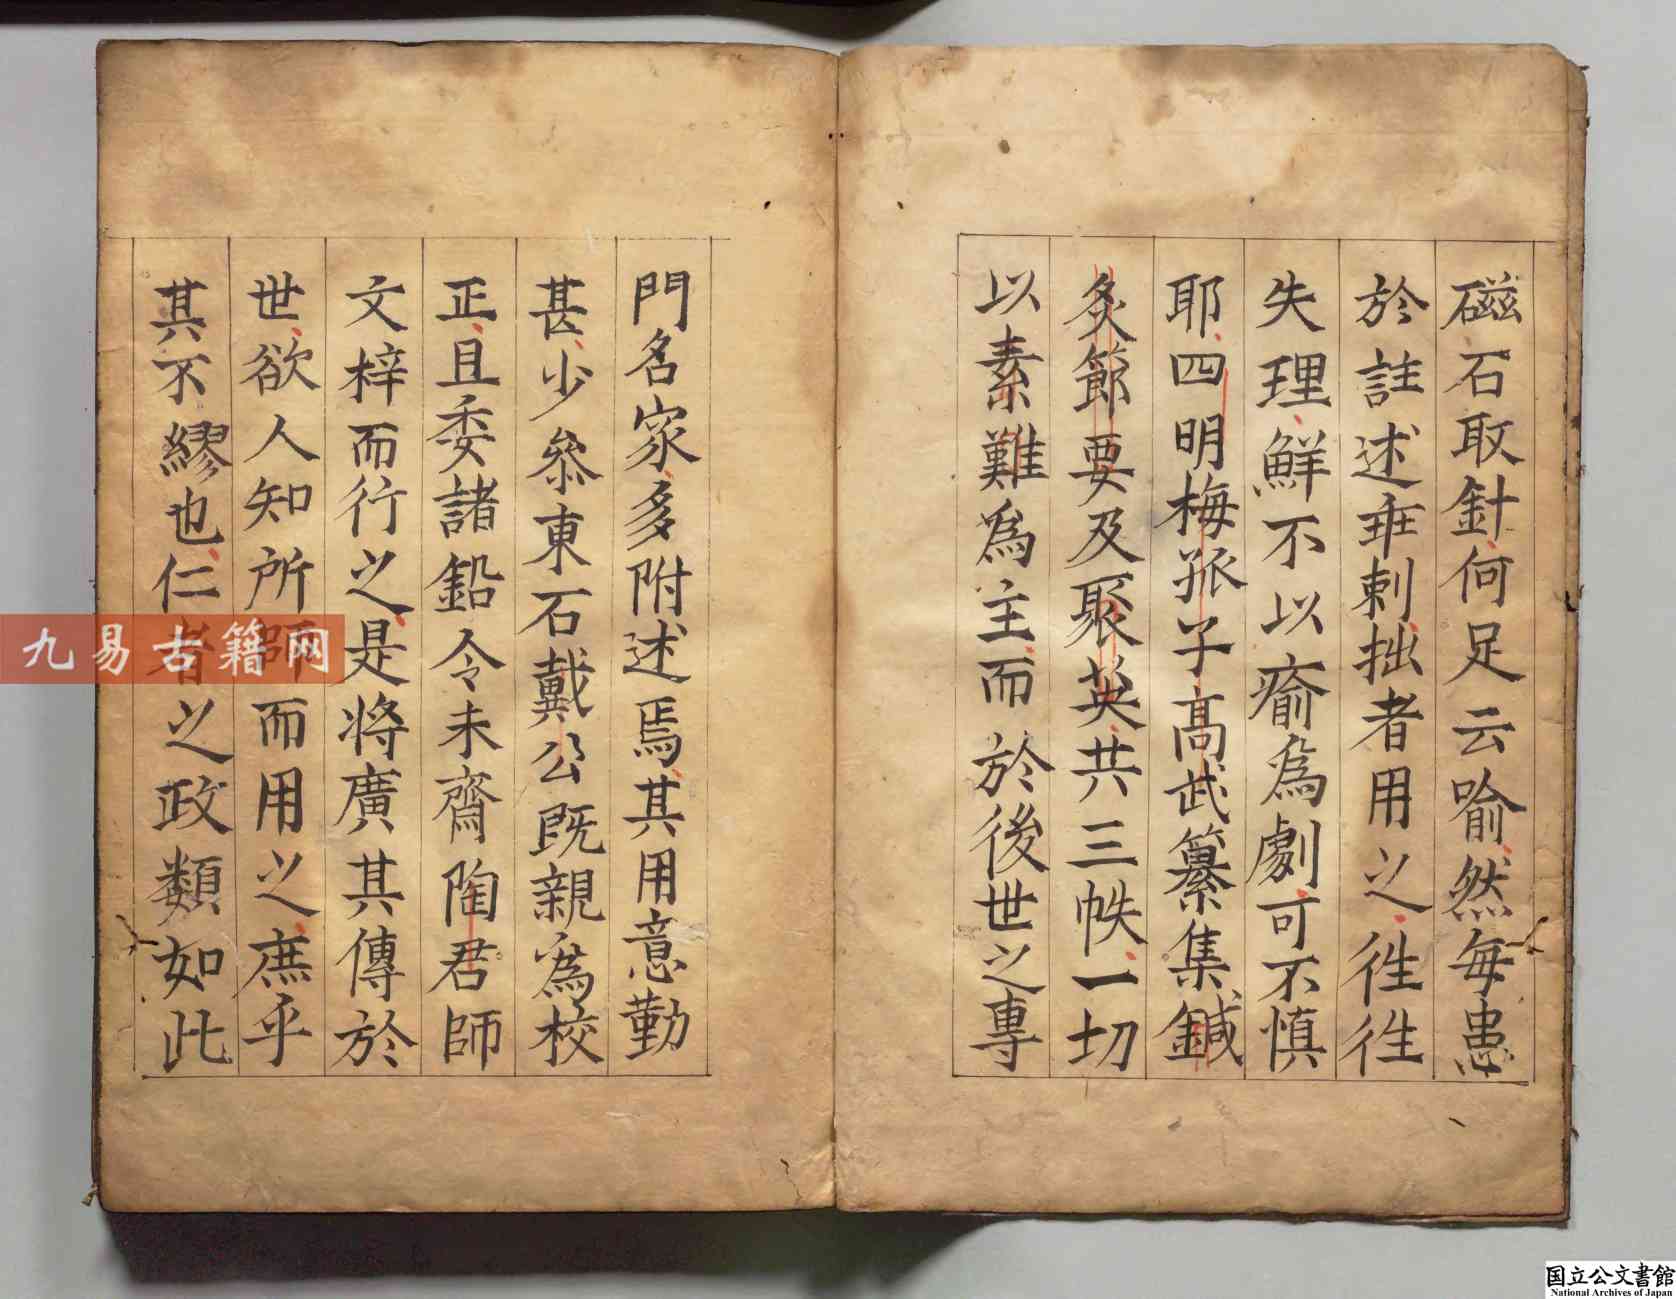 磁石取針何足云喻然每患
於註述乖剌拙者用之徃徃
失理鮮不以瘉為劇可不慎
耶四明梅孤子高武纂集鍼
灸節要及聚英共三帙一切
以素難為主而於後世之專
門名家多附述焉其用意勤
甚少叅東石戴公既親為校
正且委諸鉛令未齋陶君師
文梓而行之是將廣其傳於
世欲人知所師而用之庶乎
其不繆也仁者之政類如此
九易古籍网
国立公文書館
National Archives of Japan